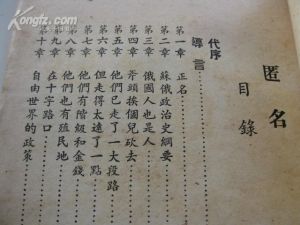 Kfzimg.com
匿名
目錄
代序
導言
第一章 正名
第二章 蘇俄政治史綱要
第三章 俄國人也是人
第四章 斧頭挨個兒砍去
第五章 他們已走了一大段路
第六章 但走得太遠了一點
第七章 他們有階級和金錢
第八章 他們也有殖民地
第九章 在十字路口
第十章 自由世界的政策